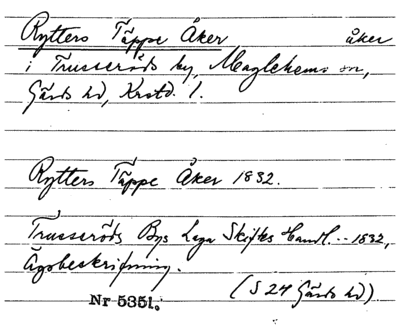 Rytters Täppe Åker åker
i Trusseröds by, Maglehems sn,
Gärds hd, Krstd. l.
Rytters Täppe Åker 1832.
Trusseröds Bys Laga Skiftes Handl. .. 1832,
Ägobeskrifning.
(S 24 Gärds hd)
Nr 5351.